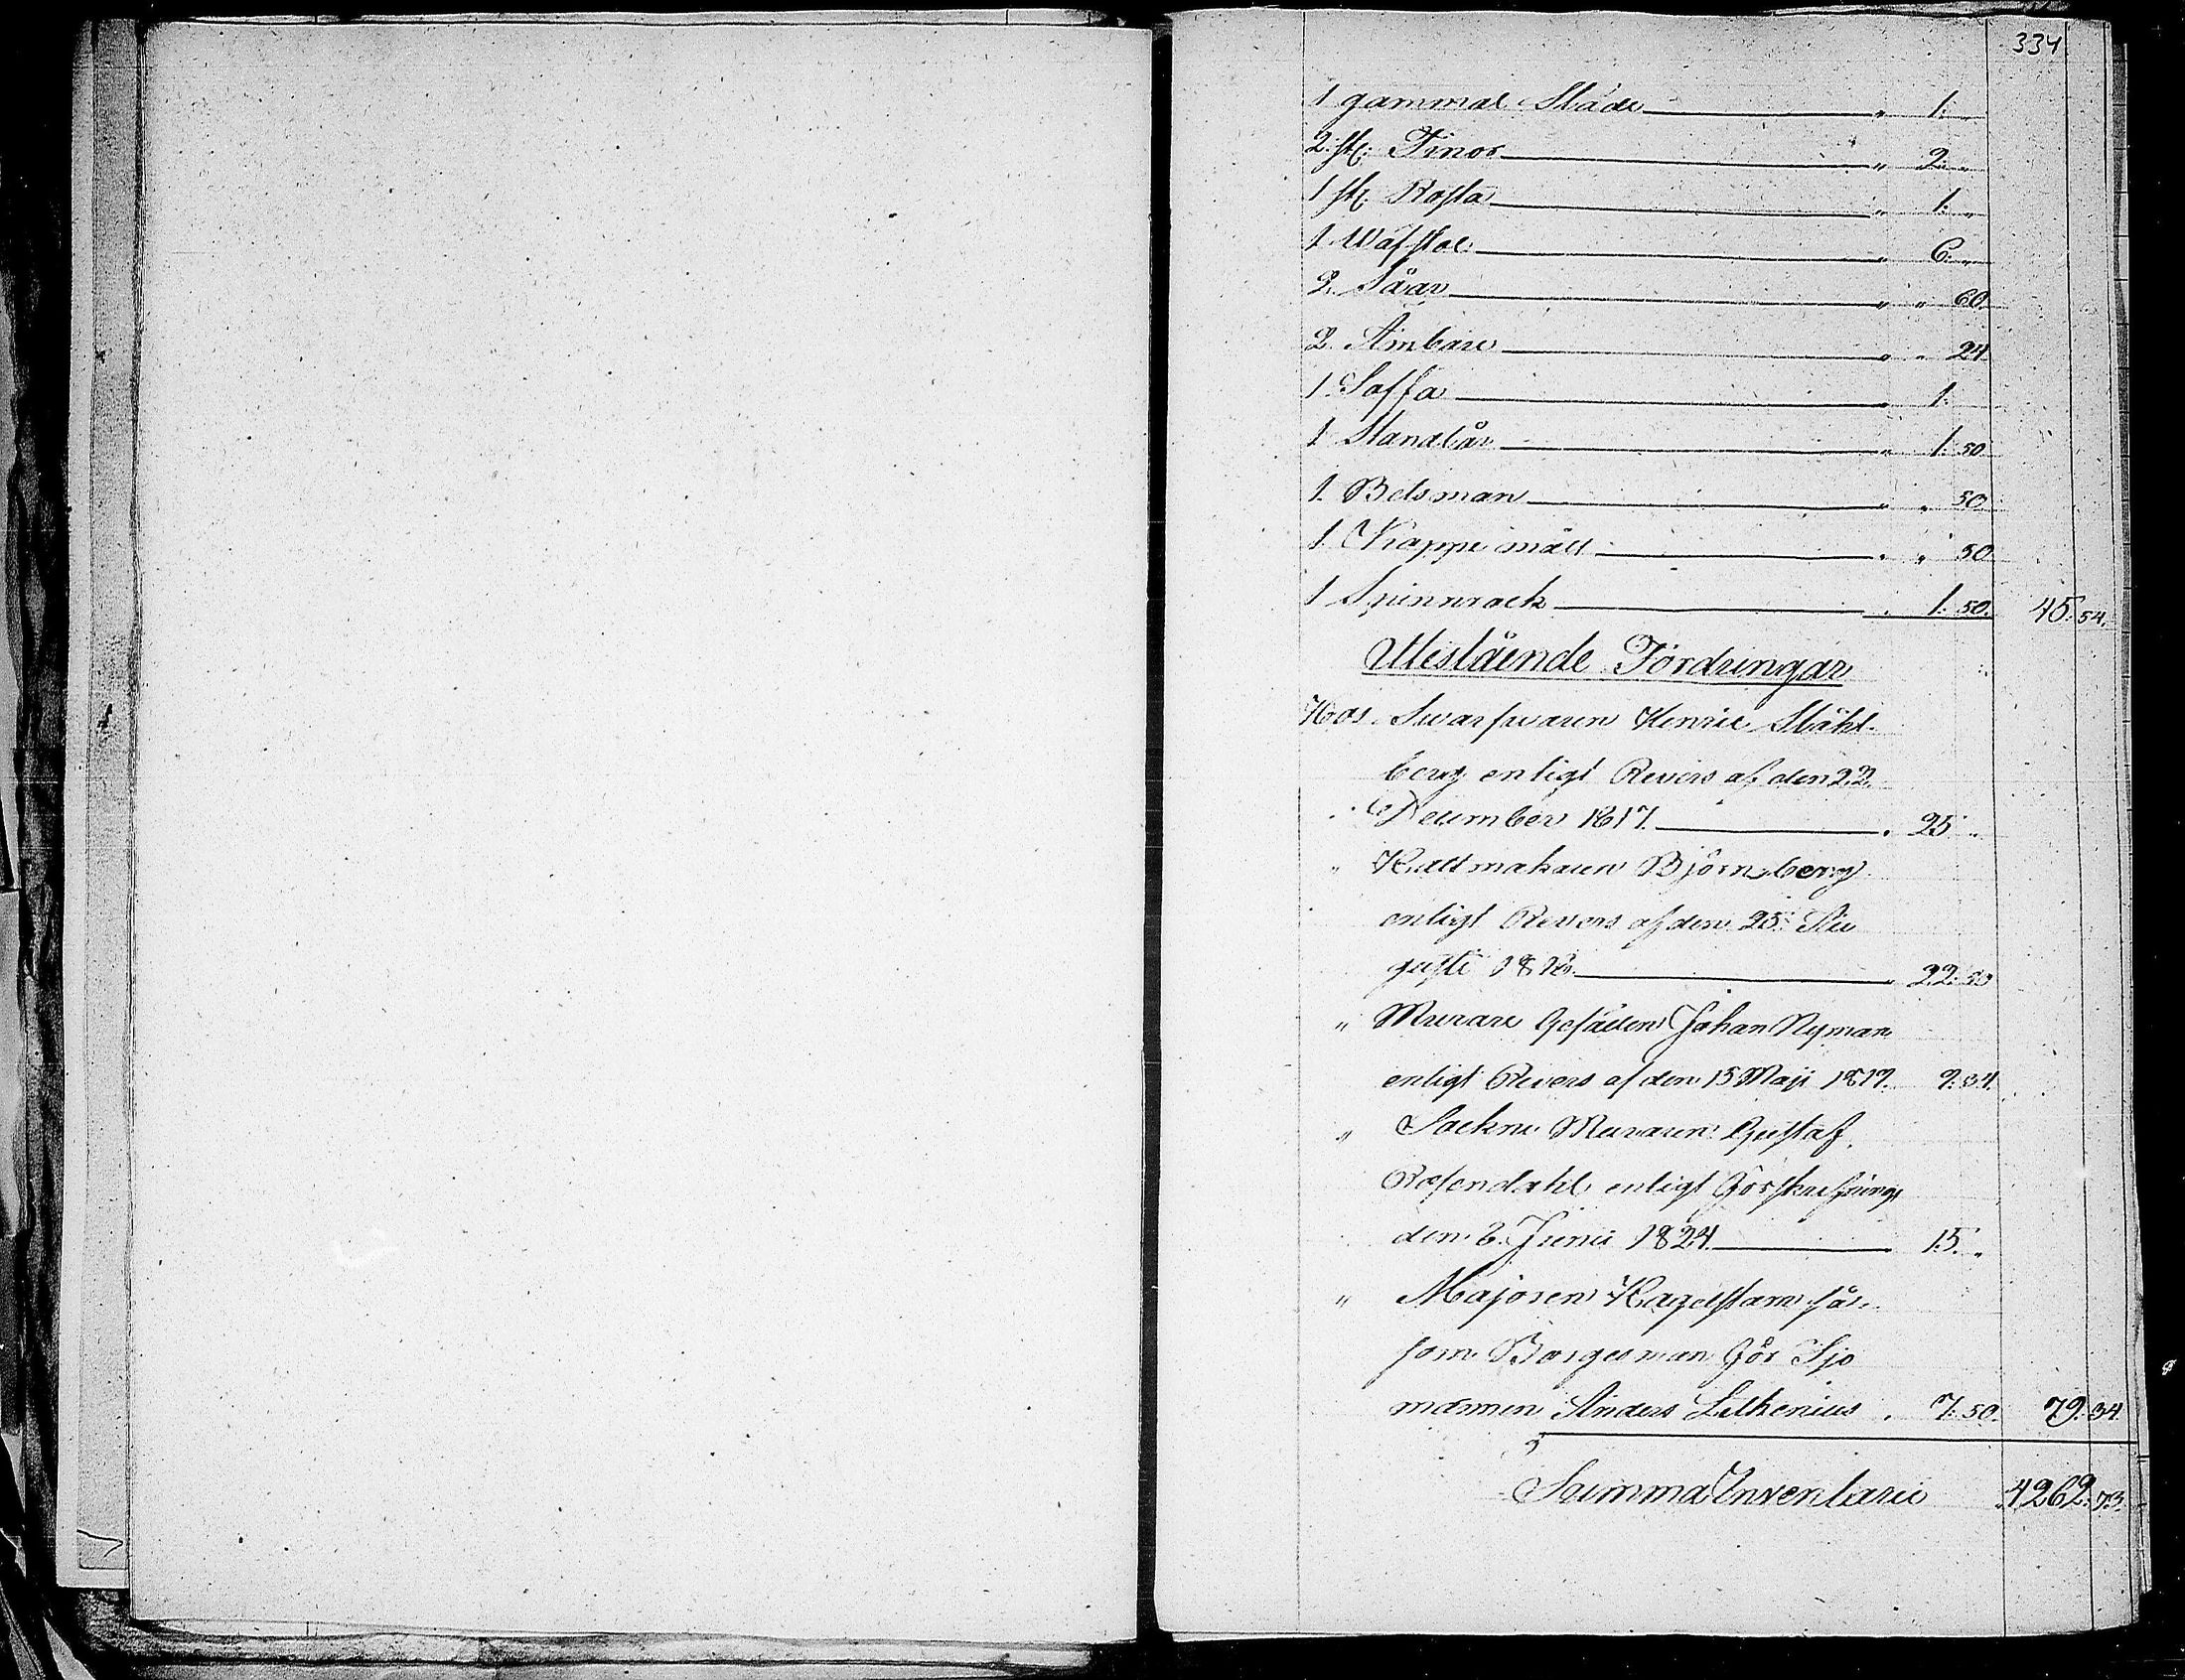 334
1 gammal Släde " 1: "
2 st: Tinor " 2: "
1 st: Rosta " 1: "
1 Wäfstol " 6: "
2. Såar " " 60.
2. Ämbare " " 24.
1 Soffa " 1:
1 Handkar " 1: 50
1. Betsman " " 50
1. Kappe mått " " 50
1 Spinnrock " 1: 50. 45: 54.
Utestående Fordringar
Hos Swarfwaren Henric Ståhl-
berg enligt Revers af den 22.
December 1817. " 25 "
" Hattmakaren Björnsberg
enligt Revers af den 25 Au
gusti 1818. " 22: 50
" Murare Gesällen Johan Nyman
enligt Revers af den 15 Maji 1817. 9: 34.
" Sockne Muraren Gustaf
Rosendahl enligt förskrifning
den 6. Junii 1824. " 15. "
" Majoren Hagelstam så
som Borgesman för Sjö
mannen Anders Lithenius " 7: 50. 79: 34.
Summa Inventarii 4262: 73.